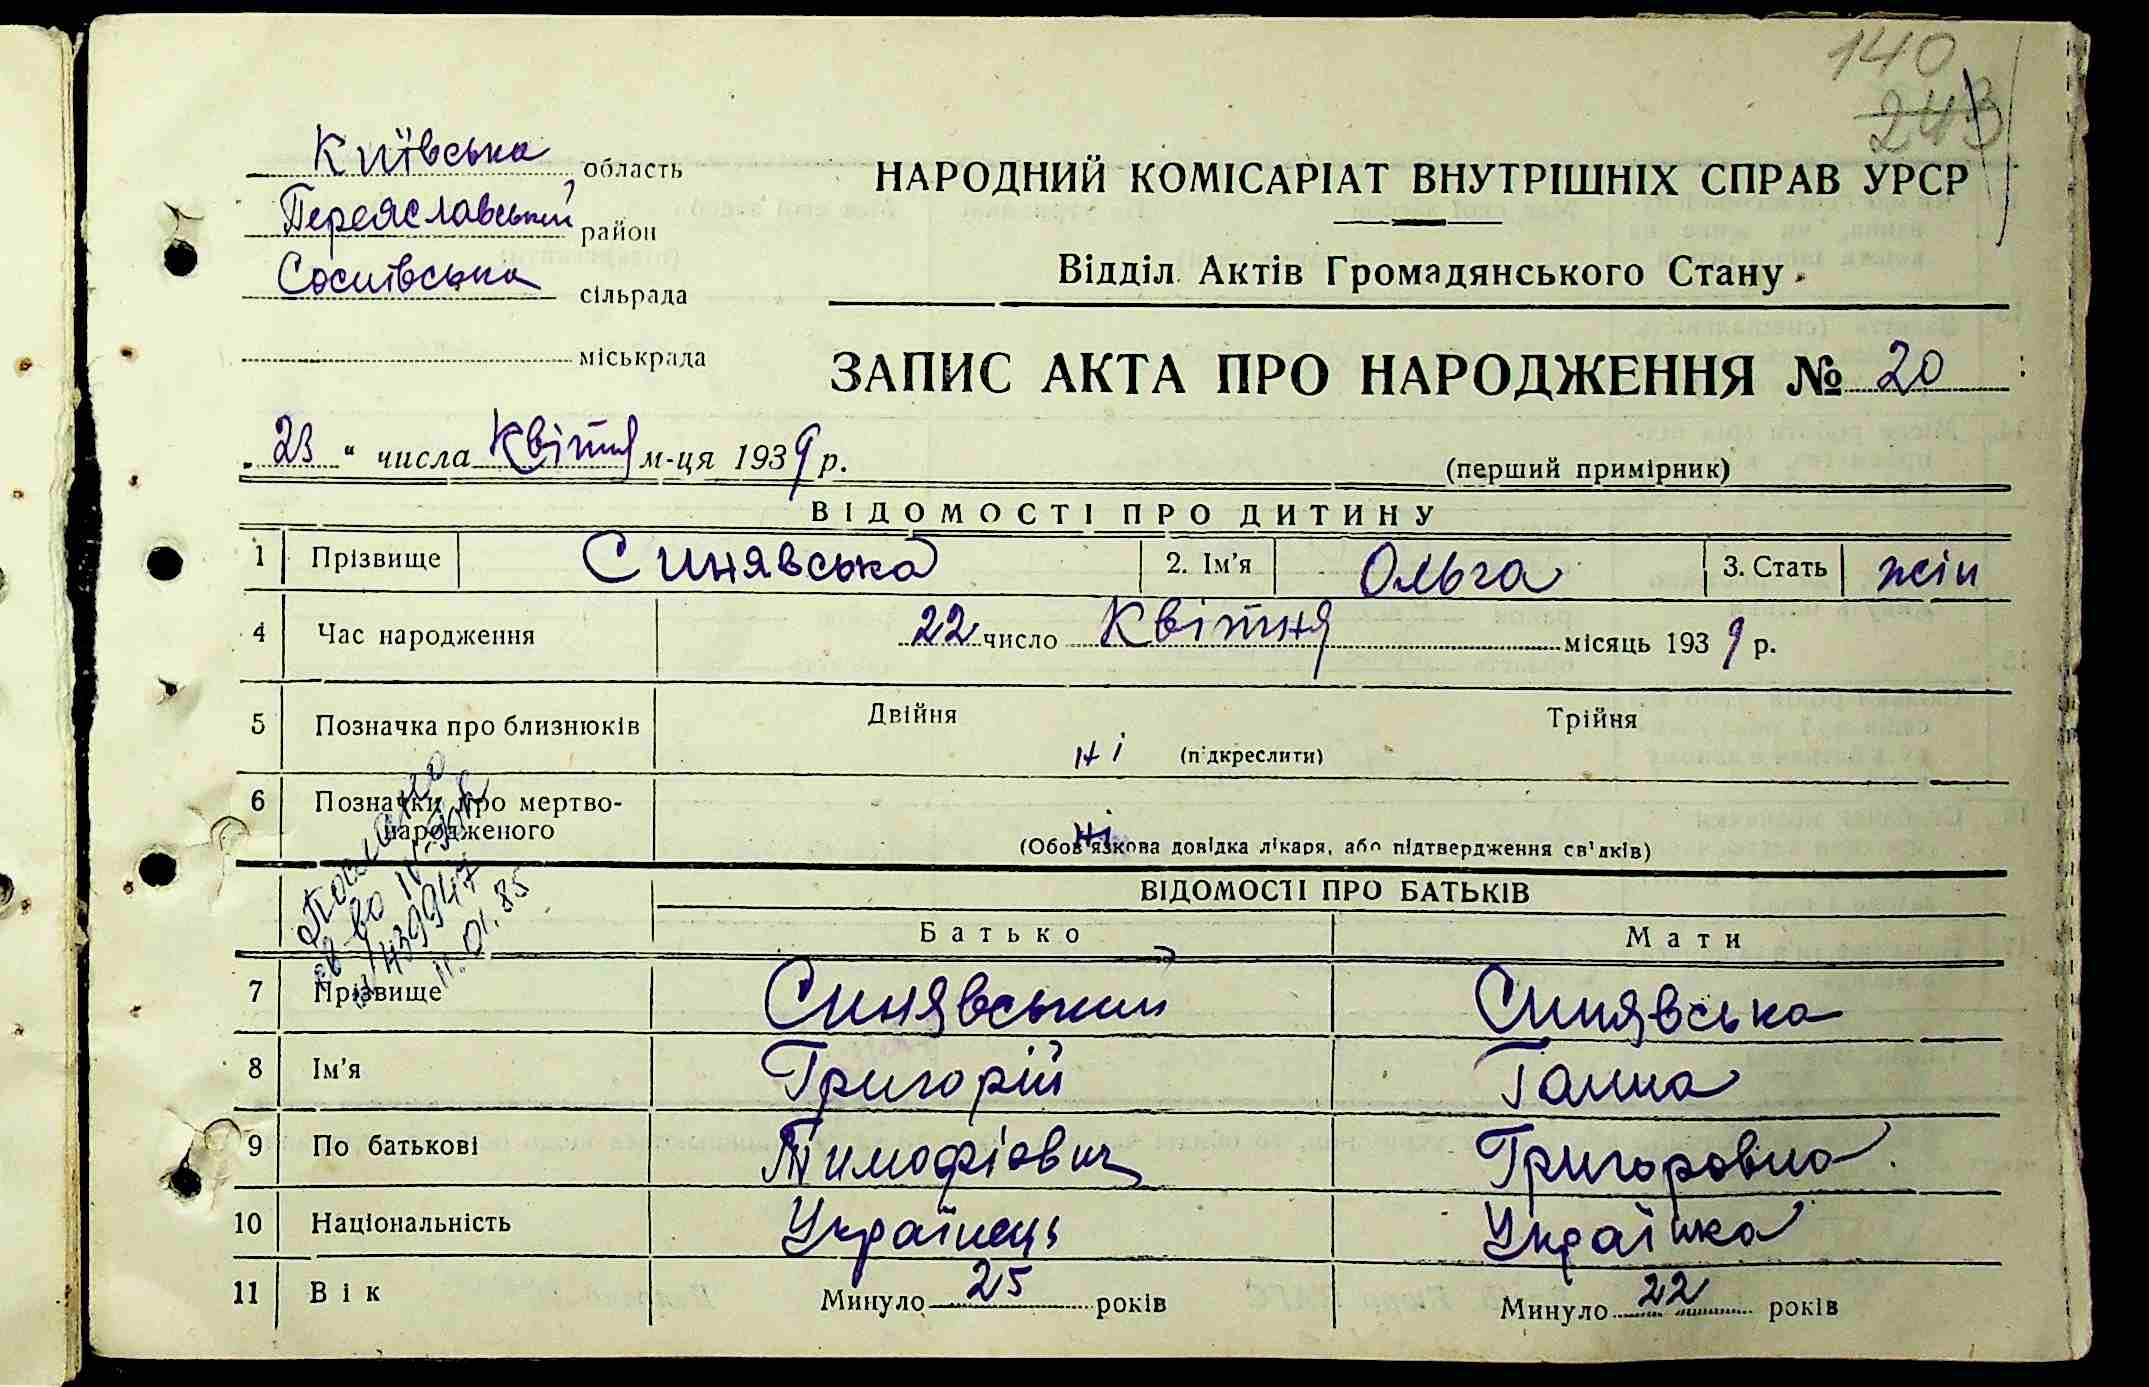 140
243
Київська область
Переяславський район
Соснівська сільрада
міськрада
НАРОДНИЙ КОМІСАРІАТ ВНУТРІШНІХ СПРАВ УРСР
Відділ Актів Громадянського Стану
ЗАПИС АКТА ПРО НАРОДЖЕННЯ № 20
„23“ числа Квітня м-ця 1939 р.
(перший примірник)
ВІДОМОСТІ ПРО ДИТИНУ
1 Прізвище Синявська 2. Ім'я Ольга 3. Стать жін
4 Час народження 22 число Квітня місяць 1939 р.
5 Позначка про близнюків Двійня Трійня
ні (підкреслити)
6 Позначки про мертво-
народженого ні
(Обов'язкова довідка лікаря, або підтвердження св'дків)
ВІДОМОСТІ ПРО БАТЬКІВ
Батько Мати
7 Прізвище Синявський Синявська
8 Ім'я Григорій Ганна
9 По батькові Тимофіович Григоровна
10 Національність Українець Українка
11 Вік Минуло 25 років Минуло 22 років
св-во
439947
11.01.85